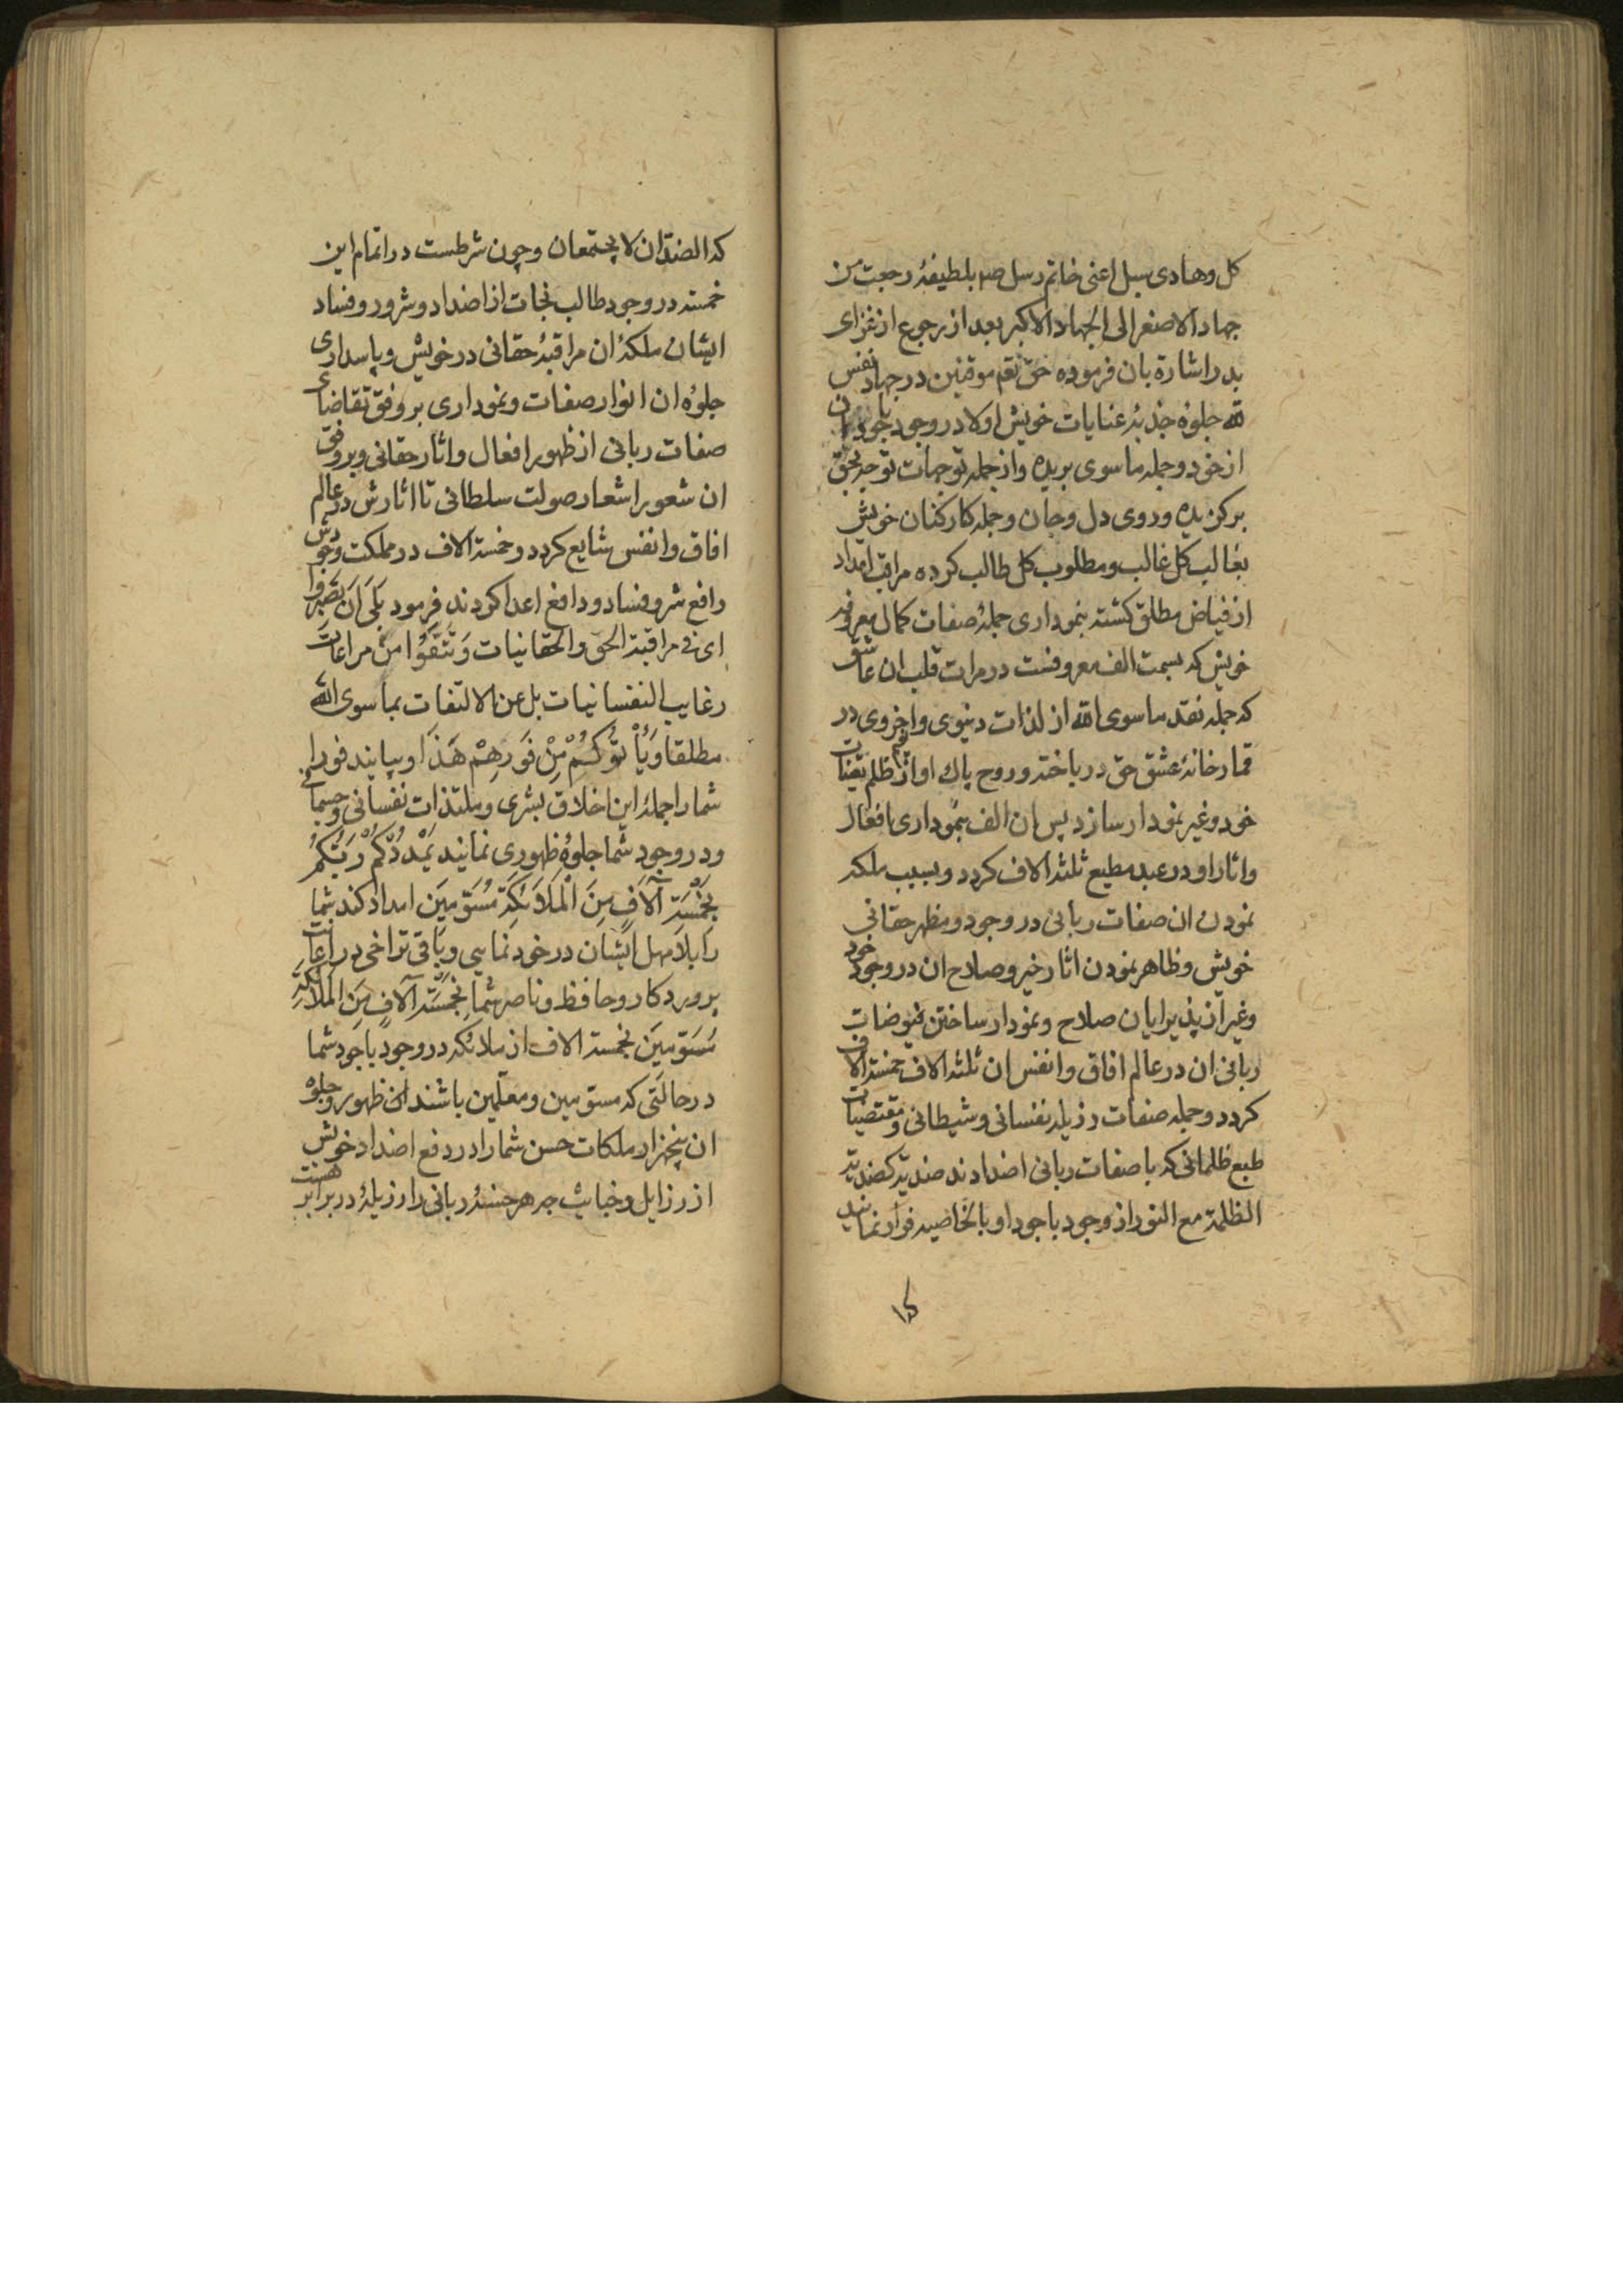 كل وهادی سبل اعنی خاتم رسل صم بلطیفهٔ رجعت من
جهاد الاصغر الی الجهاد الاکبر بعد از رجوع از غزای
بدر اشارة بان فرموده حق نعم موقنین در جهاد نفس
لله جلوهٔ جذبهٔ عنایات خویش اولا در وجود باجود
از خود وجمله ماسوی بریده واز جمله توجهات توجه بحق
برکزیده وروی دل وجان وجمله کارکنان خویش
بغالب کل غالب ومطلوب کل طالب کرده مراقب امداد
از فیاض مطلق کشته بنموداری جملهٔ صفات کمال معروفه
خویش که بسمت الف معروفست در مرات قلب ان عاشق
که جمله نقد ماسوی الله از لذات دنیوی واخروی در
قمارخانهٔ عشق حق درباخته وروح پاک او از ظلم تعینات
خود وغیر نمودار سازد پس ان الف بنموداری افعال
واثار او در عبد مطیع ثلثه الاف کردد وبسبب ملکه
نمودن ان صفات ربانی در وجود ومظهر حقانی
خویش وظاهر نمودن اثار خیر وصلاح ان در وجود خود
وغیر از پذیرایان صلاح ونمودار ساختن فیوضات
ربانی ان در عالم افاق وانفس ان ثلثه الاف خمسة الاف
کردد وجمله صفات رذیله نفسانی وشیطانی ومقتضیات
طبع ظلمانی که با صفات ربانی اضدادند ضدیة کضدیة
الظلمة مع النور از وجود باجود او بالخاصیه فرار نمایند
که الضدان لا یجتمعان وچون شرطست در اتمام این
خمسه در وجود طالب نجات از اضداد وشرور وفساد
ایشان ملکهٔ ان مراقبهٔ حقانی در خویش وپاسداری
جلوه ان انوار صفات ونموداری بر وفق تقاضای
صفات ربانی از ظهور افعال واثار حقانی وبروفق
ان شعور اشعار صولت سلطانی تا اثارش در عالم
افاق وانفس شایع کردد وخمسة الاف در مملکت وجودش
رافع شر وفساد ودافع اعدا کردند فرمود بَلَی اَن تَصبِرُوا
ای فی مراقبة الحق والحقانیات وَتَتَّقُوا من مراعات
رغایب النفسانیات بل عن الالتفات بما سوی الله
مطلقا وَیَأْتُوکُمْ مِنْ فَورِهِمْ هَذَا وبیایند فورا
شما را جملهٔ این اخلاق بشری وملتذات نفسانی وجسمانی
ودر وجود شما جلوهٔ ظهوری نمایند یُمْدِدْکُمْ رَبُّکُمْ
بِخَمْسَةِ آلَافٍ مِنَ الْمَلَائِکَةِ مُسَوِّمِینَ امداد کند شما
را بلا مهل ایشان در خود نمایی وباقی تراخی در اعانت
پروردکار وحافظ وناصر شما بِخَمْسَةِ آلَافٍ مِنَ الْمَلَائِکَةِ
مُسَوِّمِینَ بخمسة الاف از ملائکه در وجود باجود شما
در حالتی که مسومین ومعلمین باشند ان ظهور وجلوه
ان پنجهزار ملکات حسن شما را در دفع اضداد خویش
از رزایل وخبایث چه هر حسنهٔ ربانی را رزیلهٔ در برابر هست